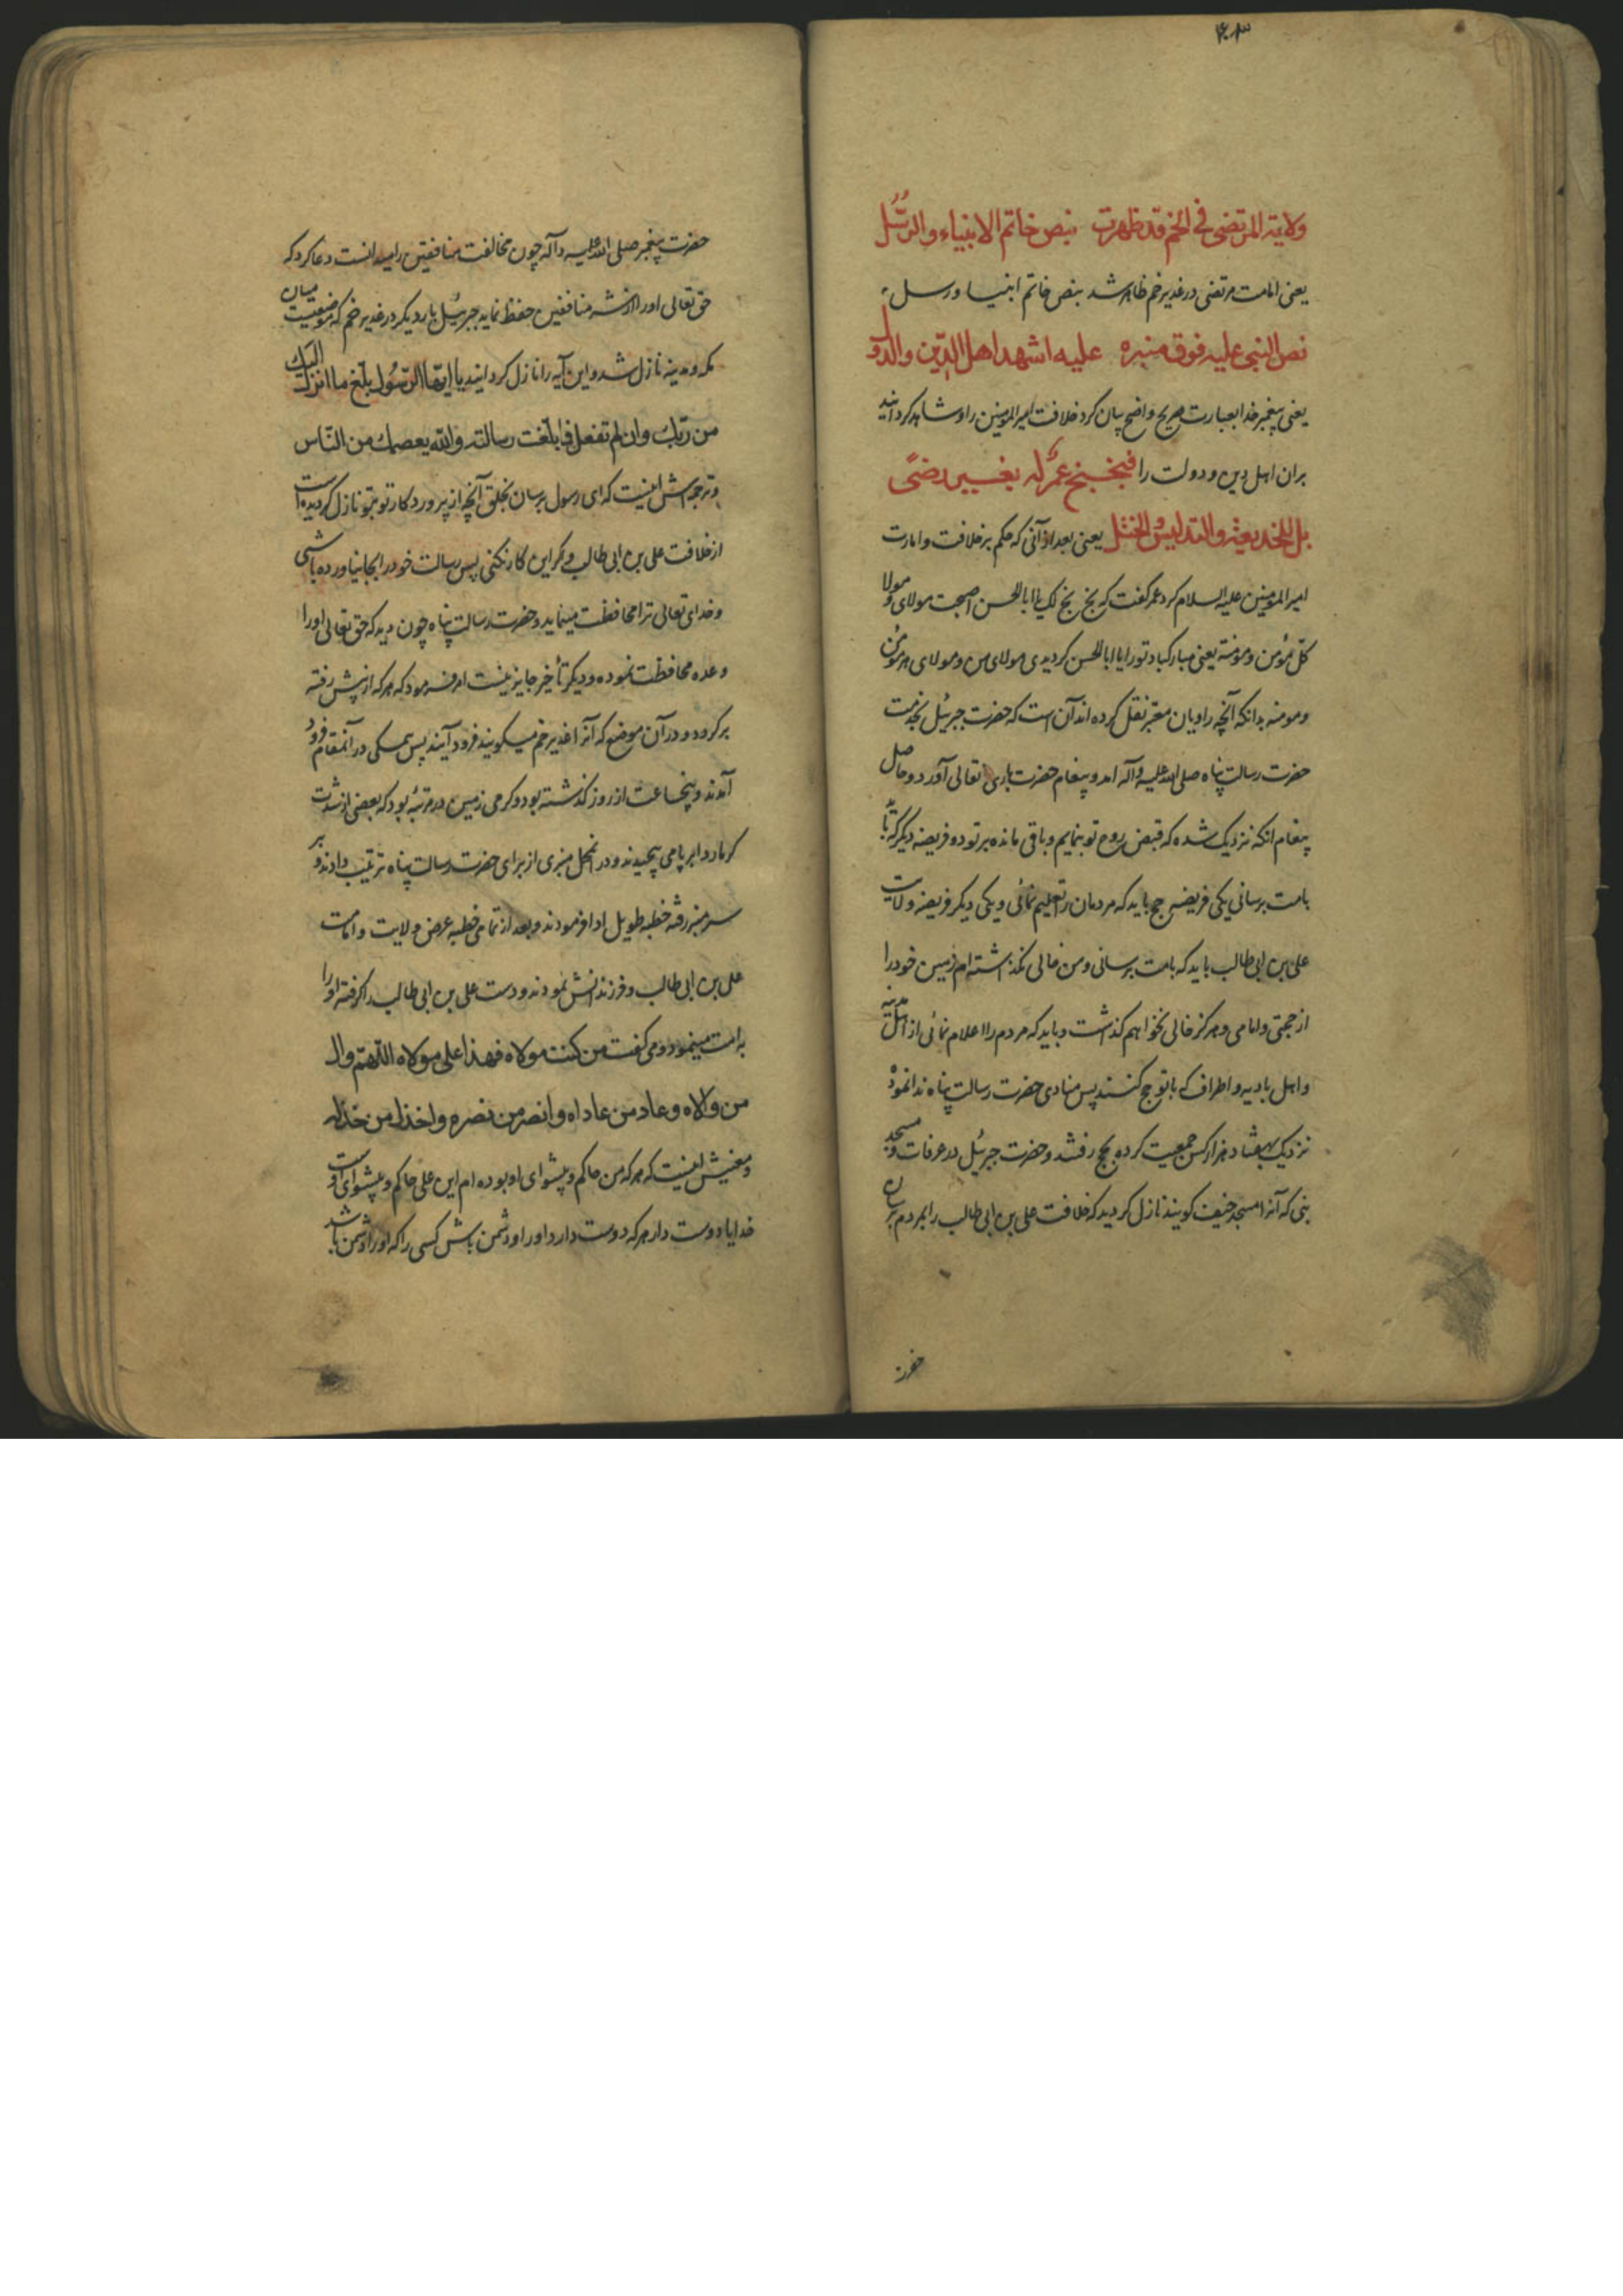 ۴۰۳
ولایة المرتضی فی الخم قد ظهرت بنص خاتم الانبیاء والرسل
یعنی امامت مرتضی در غدیر خم ظاهر شد بنص خاتم انبیا ورسل
نص النبی علیه فوق منبره علیه اشهد اهل الدین والدول
یعنی پیغمبر خدا بعبارت صریح واضح بیان کرد خلافت امیر المومنین را وشاهد کردانید
بران اهل دین و دولت را فبخبخ عمر له بغیر رضی
بل للخدیعة والتدلیس والختل یعنی بعد از آنی که حکم بر خلافت وامارت
امیر المومنین علیه السلام کرد عمر کفت که بخ بخ لک یا ابا الحسن اصبحت مولای ومولا
کل مؤمن ومومنة یعنی مبارکباد تو را یا ابا الحسن کردیدی مولای من ومولای هر مؤمن
ومومنه بدانکه آنچه راویان معتبر نقل کرده اند آن است که حضرت جبرئیل بخدمت
حضرت رسالت پناه صلی الله علیه وآله امد وپیغام حضرت باری تعالی آورد وحاصل
پیغام انکه نزدیک شده که قبض روح تو بنمایم وباقی مانده بر تو دو فریضه دیکر که باید
بامت برسانی یکی فریضه حج باید که مردمان را تعلیم نمائی ویکی دیکر فریضه ولایت
علی بن ابی طالب باید که بامت برسانی ومن خالی نکذاشته ام زمین خود را
از حجتی وامامی وهرکز خالی نخواهم کذاشت وباید که مردم را اعلام نمائی از اهل مدینه
واهل بادیه واطراف که با تو حج کنند پس منادی حضرت رسالت پناه ندا نمود
نزدیک بهفتاد هزار کس جمعیت کرده بحج رفتند وحضرت جبرئیل در عرفات ومسجد
بنی که آنرا مسجد خیف کویند نازل کردید که خلافت علی بن ابی طالب را بمردم برسان
حضرت
حضرت پیغمبر صلی الله علیه وآله چون مخالفت منافقین را میدانست دعا کرد که
حق تعالی او را از شر منافقین حفظ نماید جبرئیل بار دیکر در غدیر خم که موضعیست میان
مکه ومدینه نازل شد واین آیه را نازل کردانید یا ایها الرسول بلغ ما انزل الیک
من ربک وان لم تفعل فما بلغت رسالته والله یعصمک من الناس
وترجمه اش اینست که ای رسول برسان بخلق آنچه از پروردکار تو بتو نازل کردیده است
از خلافت علی بن ابی طالب واکر این کار نکنی پس رسالت خود را بجا نیاورده باشی
وخدای تعالی ترا محافظت مینماید وحضرت رسالت پناه چون دید که حق تعالی اورا
وعده محافظت نموده ودیکر تأخیر جایز نیست امر فرمود که هر که از پیش رفته
برکرود ودر آن موضع که آنرا غدیر خم میکویند فرود آیند پس همکی در آنمقام فرود
آمدند وپنجساعت از روز کذشته بود وکرمی زمین در مرتبه بود که بعضی از شدت
کرما ردا بر پا می پیچیدند ودر انمحل منبری از برای حضرت رسالت پناه ترتیب دادند وبر
سر منبر رفته خطبه طویل ادا فرمودند وبعد از تمامی خطبه عرض ولایت وامامت
علی بن ابی طالب وفرزندانش نمودند ودست علی بن ابی طالب را کرفته اورا
به امت مینمود ومی کفت من کنت مولاه فهذا علی مولاه اللهم وال
من والاه وعاد من عاداه وانصر من نصره واخذل من خذله
ومعنیش اینست که هر که من حاکم وپیشوای او بوده ام این علی حاکم وپیشوای اوست
خدایا دوست دار هر که دوست دارد اورا ودشمن باش کسی را که اورا دشمن باشد